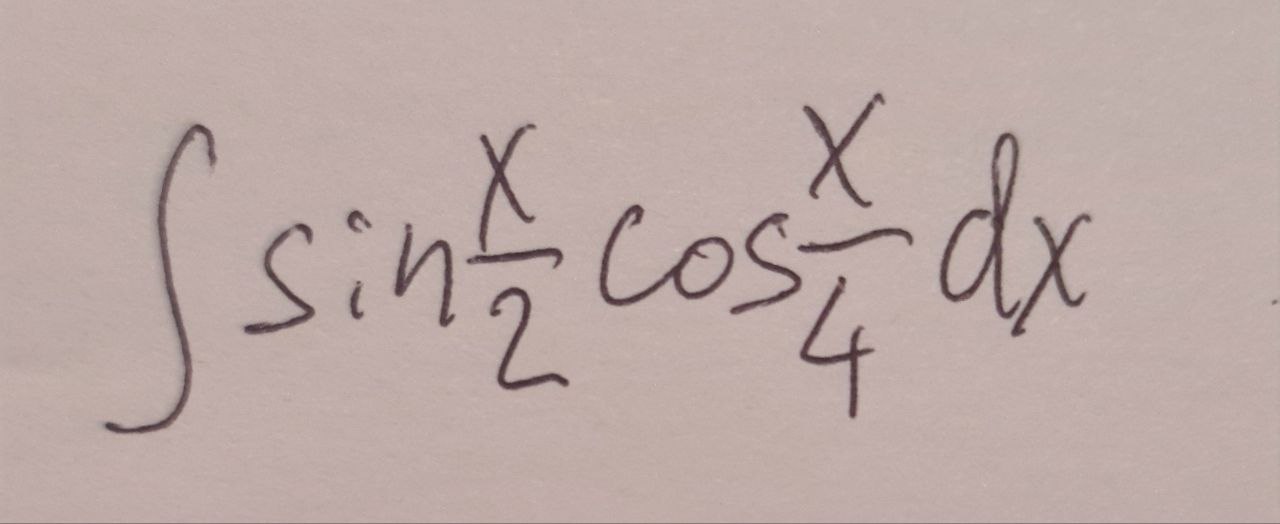 ∫ sin x/2 cos x/4 dx